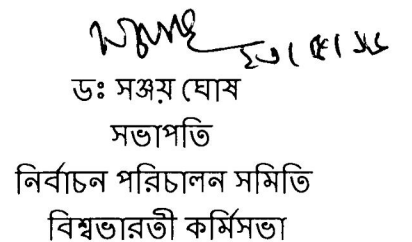 ডঃ সঞ্জয় ঘোষ
সভাপতি
নির্বাচন পরিচালন সমিতি
বিশ্বভারতী কর্মিসভা